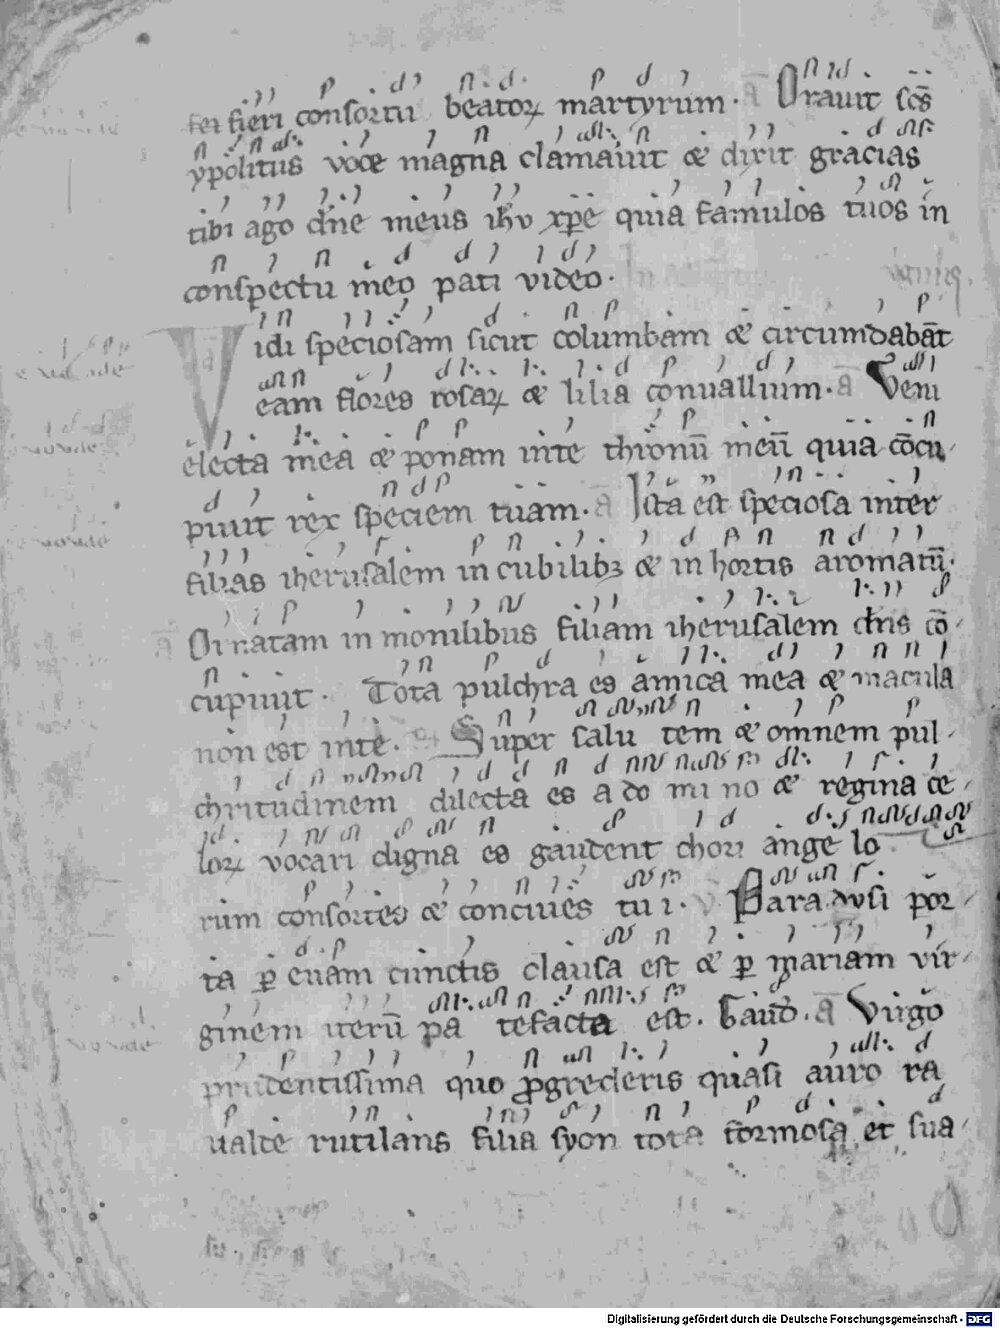 fieri consortiū beatoꝝ martyrum. a Orauit sc̄s
ypolitus voce magna clamauit & dixit gracias
tibi ago dn̄e meus ih̄u xp̄e quia famulos tuos in
conspectu meo pati video.
Vidi speciosam sicut columbam & circumdabāt
eam flores rosaꝝ & lilia conuallium. a Veni
electa mea & ponam in te thronū meū quia cōcu
piuit rex speciem tuam. a Ista est speciosa inter
filias iherusalem in cubilibꝫ & in hortis aromatū.
a Ornatam in monilibus filiam iherusalem dn̄s cō
cupiuit. Tota pulchra es amica mea & macula
non est in te. Super salu tem & omnem pul
chritudinem dilecta es a do mi no & regina ce
loꝝ vocari digna es gaudent chori ange lo
rum consortes & conciues tu i. V Paradysi por
ta ꝑ euam cunctis clausa est & ꝑ mariam vir
ginem iterū pa tefacta est. Gaud̄. a Virgo
prudentissima quo ꝓgrederis quasi auro ra
ualde rutilans filia syon tota formosa et sua
Digitalisierung gefördert durch die Deutsche Forschungsgemeinschaft - DFG